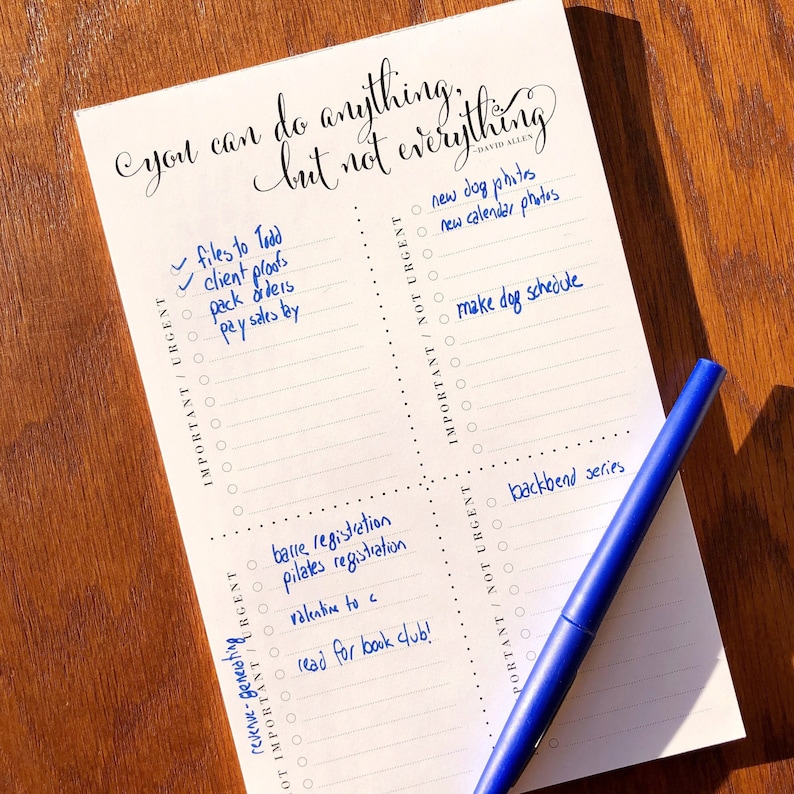 you can do anything,
but not everything
-DAVID ALLEN
IMPORTANT / URGENT
✓ files to Todd
✓ client proofs
pack orders
pay sales tax
IMPORTANT / NOT URGENT
new dog photos
new calendar photos
make dog schedule
NOT IMPORTANT / URGENT
revenue-generating
barre registration
pilates registration
valentine to c
read for book club!
PORTANT / NOT URGENT
backbend series